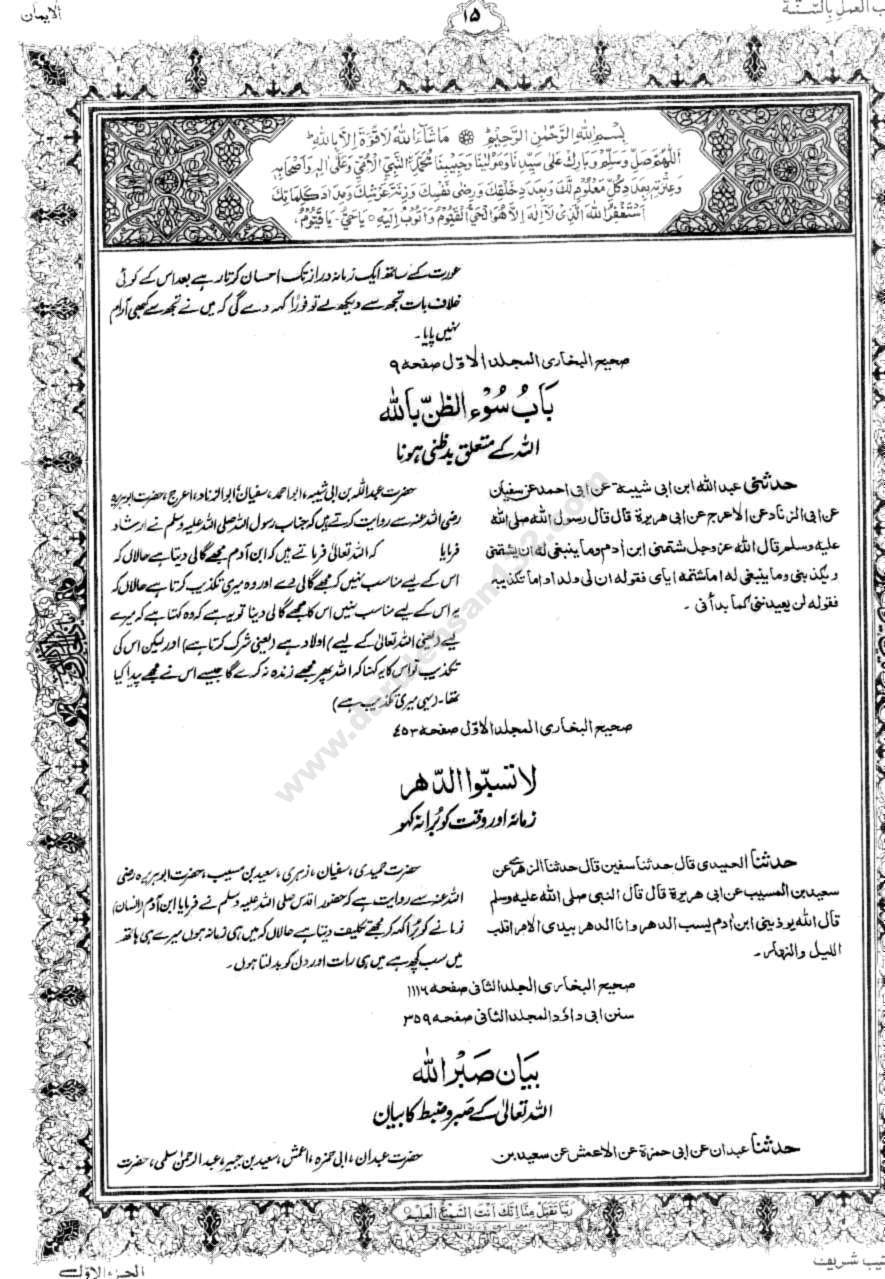 الایمان
۱۵
ب العمل بالسنّة
بِسْمِ اللهِ الرَّحْمٰنِ الرَّحِيْمِ مَا شَآءَ اللهُ لَا قُوَّةَ اِلَّا بِاللهِ
اَللّٰهُمَّ صَلِّ وَسَلِّمْ وَبَارِكْ عَلٰى سَيِّدِنَا وَمَوْلٰنَا وَحَبِيْبِنَا مُحَمَّدِ النَّبِيِّ الْاُمِّيِّ وَعَلٰى اٰلِهٖ وَاَصْحَابِهٖ
وَعِتْرَتِهٖ بِعَدَدِ كُلِّ مَعْلُوْمٍ لَّكَ وَبِعَدَدِ خَلْقِكَ وَرِضٰى نَفْسِكَ وَزِنَةِ عَرْشِكَ وَمِدَادِ كَلِمَاتِكَ
اَسْتَغْفِرُ اللهَ الَّذِيْ لَآ اِلٰهَ اِلَّا هُوَ الْحَيُّ الْقَيُّوْمُ وَاَتُوْبُ اِلَيْهِ يَا حَيُّ يَا قَيُّوْمُ
عورت کے ساتھ ایک زمانہ دراز تک احسان کرتا رہے بعد اس کے کوئی
خلاف بات تجھ سے دیکھ لے تو فورًا کہہ دے گی کہ میں نے تجھ سے کبھی آرام
نہیں پایا۔
صحیح البخاری المجلد الاوّل صفحہ ۹
بَابُ سُوْءِ الظَّنِّ بِاللهِ
اللہ کے متعلق بدظنی ہونا
حدثنی عبد الله ابن ابی شیبة عن ابی احمد عن سفیان
عن ابی الزناد عن الاعرج عن ابی هریرة قال قال رسول الله صلی الله
علیه وسلم قال الله عز وجل شتمنی ابن ادم وما ینبغی له ان یشتمنی
و یکذبنی وما ینبغی له اما شتمه ایای فقوله ان لی ولدا و اما تکذیبه
فقوله لن یعیدنی کما بدأنی ۔
حضرت عبداللہ بن ابی شیبہ، ابو احمد، سفیان، ابو الزناد، اعرج، حضرت ابوہریرہ
رضی اللہ عنہ سے روایت کرتے ہیں کہ جناب رسول اللہ صلی اللہ علیہ وسلم نے ارشاد
فرمایا کہ اللہ تعالیٰ فرماتے ہیں کہ ابن آدم مجھے گالی دیتا ہے حالاں کہ
اس کے لیے مناسب نہیں کہ مجھے گالی دے اور وہ میری تکذیب کرتا ہے حالاں کہ
یہ اس کے لیے مناسب نہیں اس کا مجھے گالی دینا تو یہ ہے کہ وہ کہتا ہے کہ میرے
لیے (یعنی اللہ تعالیٰ کے لیے) اولاد ہے (یعنی شرک کرتا ہے) اور لیکن اس کی
تکذیب تو اس کا یہ کہنا کہ اللہ پھر مجھے زندہ نہ کرے گا جیسے اس نے مجھے پیدا کیا
تھا۔ (یہی میری تکذیب ہے)
صحیح البخاری المجلد الاوّل صفحہ ۴۵۳
لا تسبّوا الدّھر
زمانہ اور وقت کو بُرا نہ کہو
حدثنا الحمیدی قال حدثنا سفین قال حدثنا الزهری عن
سعید بن المسیب عن ابی هریرة قال قال النبی صلی الله علیه وسلم
قال الله یوذینی ابن اٰدم یسب الدهر وانا الدهر بیدی الامر اقلب
اللیل والنهار۔
حضرت حمیدی، سفیان، زہری، سعید بن مسیب، حضرت ابوہریرہ رضی
اللہ عنہ سے روایت ہے کہ حضور اقدس صلی اللہ علیہ وسلم نے فرمایا ابن آدم (انسان)
زمانے کو بُرا کہہ کر مجھے تکلیف دیتا ہے حالاں کہ میں ہی زمانہ ہوں میرے ہی ہاتھ
میں سب کچھ ہے میں ہی رات اور دن کو بدلتا ہوں۔
صحیح البخاری الجلد الثانی صفحہ ۱۱۱۶
سنن ابی داؤد المجلد الثانی صفحہ ۳۵۹
بَیَان صَبْرِ اللہ
اللہ تعالیٰ کے صبر و ضبط کا بیان
حدثنا عبدان عن ابی حمزة عن الاعمش عن سعید بن
حضرت عبدان، ابی حمزہ، اعمش، سعید بن جبیر، عبدالرحمٰن سلمی، حضرت
رَبَّنَا تَقَبَّلْ مِنَّا اِنَّكَ اَنْتَ السَّمِيْعُ الْعَلِيْمُ
الجزء الاوّل
تیب شریف